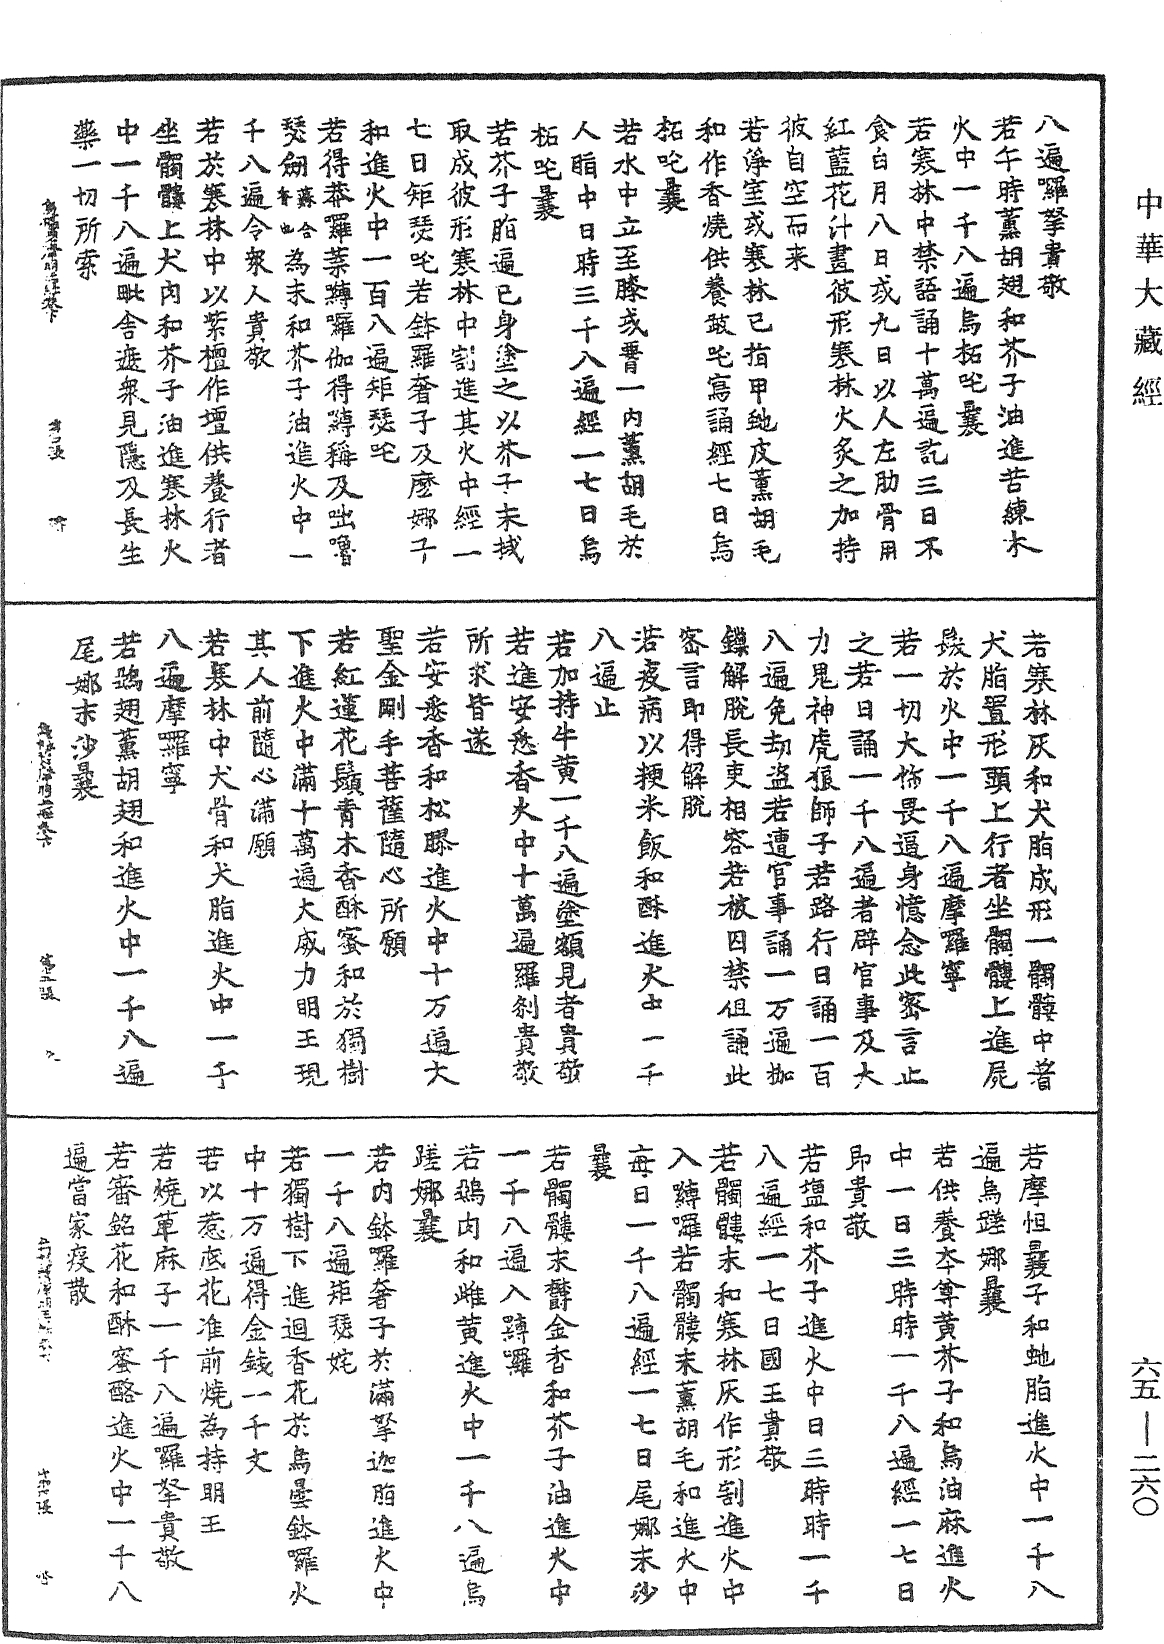 中華大藏經
八遍囉拏貴敬
若午時薰胡翅和芥子油進苦練木
火中一千八遍烏柘吒曩
若寒林中禁語誦十萬遍訖三日不
食白月八日或九日以人左肋骨用
紅藍花汁畫彼形寒林火炙之加持
彼自空而来
若淨室或寒林已指甲虵皮薰胡毛
和作香燒供養跛吒寫誦經七日烏
柘吒曩
若水中立至膝或臀一內薰胡毛於
人脂中日時三千八遍經一七日烏
柘吒曩
若芥子脂遍已身塗之以芥子末拭
取成彼形寒林中割進其火中經一
七日矩瑟吒若鉢羅奢子及麼娜子
和進火中一百八遍矩瑟吒
若得恭羅葉縛囉伽得縛稱及咄嚕
瑟劒蘇合香也為末和芥子油進火中一
千八遍令衆人貴敬
若於寒林中以紫檀作壇供養行者
坐髑髏上犬肉和芥子油進寒林火
中一千八遍毗舍遮衆見隱及長生
藥一切所索
若寒林灰和犬脂成形一髑髏中著
犬脂置形頭上行者坐髑髏上進屍
於火中一千八遍摩囉寧
若一切大怖畏逼身憶念此密言止
之若日誦一千八遍者辟官事及大
力鬼神虎狼師子若路行日誦一百
八遍免劫盗若遭官事誦一万遍枷
鏁解脫長吏相容若被囚禁但誦此
密言即得解脫
若疫病以粳米飯和酥進火中一千
八遍止
若加持牛黄一千八遍塗額見者貴敬
若進安悉香火中十萬遍羅剎貴敬
所求皆遂
若安悉香和松膠進火中十万遍大
聖金剛手菩薩隨心所願
若紅蓮花鬚青木香酥蜜和於獨樹
下進火中滿十萬遍大威力明王現
其人前隨心滿願
若寒林中犬骨和犬脂進火中一千
八遍摩囉寧
若鵄翅薰胡翅和進火中一千八遍
尾娜末沙曩
若摩怛曩子和虵脂進火中一千八
遍烏蹉娜曩
若供養夲尊黄芥子和烏油麻進火
中一日三時時一千八遍經一七日
即貴敬
若塩和芥子進火中日三時時一千
八遍經一七日國王貴敬
若髑髏末和寒林灰作形割進火中
入縛囉若髑髏末薰胡毛和進火中
每日一千八遍經一七日尾娜末沙
曩
若髑髏末欝金香和芥子油進火中
一千八遍入縛囉
若鵄肉和雌黄進火中一千八遍烏
蹉娜曩
若內鉢囉奢子於滿拏迦脂進火中
一千八遍矩瑟姹
若獨樹下進迴香花於烏曇鉢囉火
中十万遍得金錢一千文
若以惹底花准前燒為持明王
若燒萆麻子一千八遍囉拏貴敬
若審銘花和酥蜜酪進火中一千八
遍當家疫散
六五—二六〇